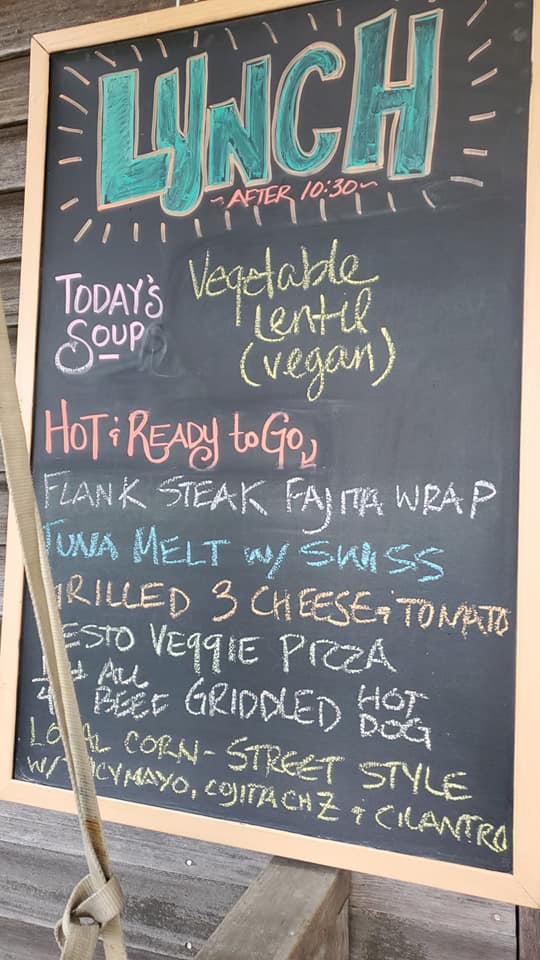 LUNCH
~AFTER 10:30~
TODAY'S SOUP
Vegetable
Lentil
(vegan)
HOT & READY to GO
FLANK STEAK FAJITA WRAP
TUNA MELT W/ SWISS
GRILLED 3 CHEESE & TOMATO
PESTO VEGGIE PIZZA
ALL BEEF GRIDDLED HOT DOG
LOCAL CORN - STREET STYLE
W/ MAYO, COJITA CHZ & CILANTRO